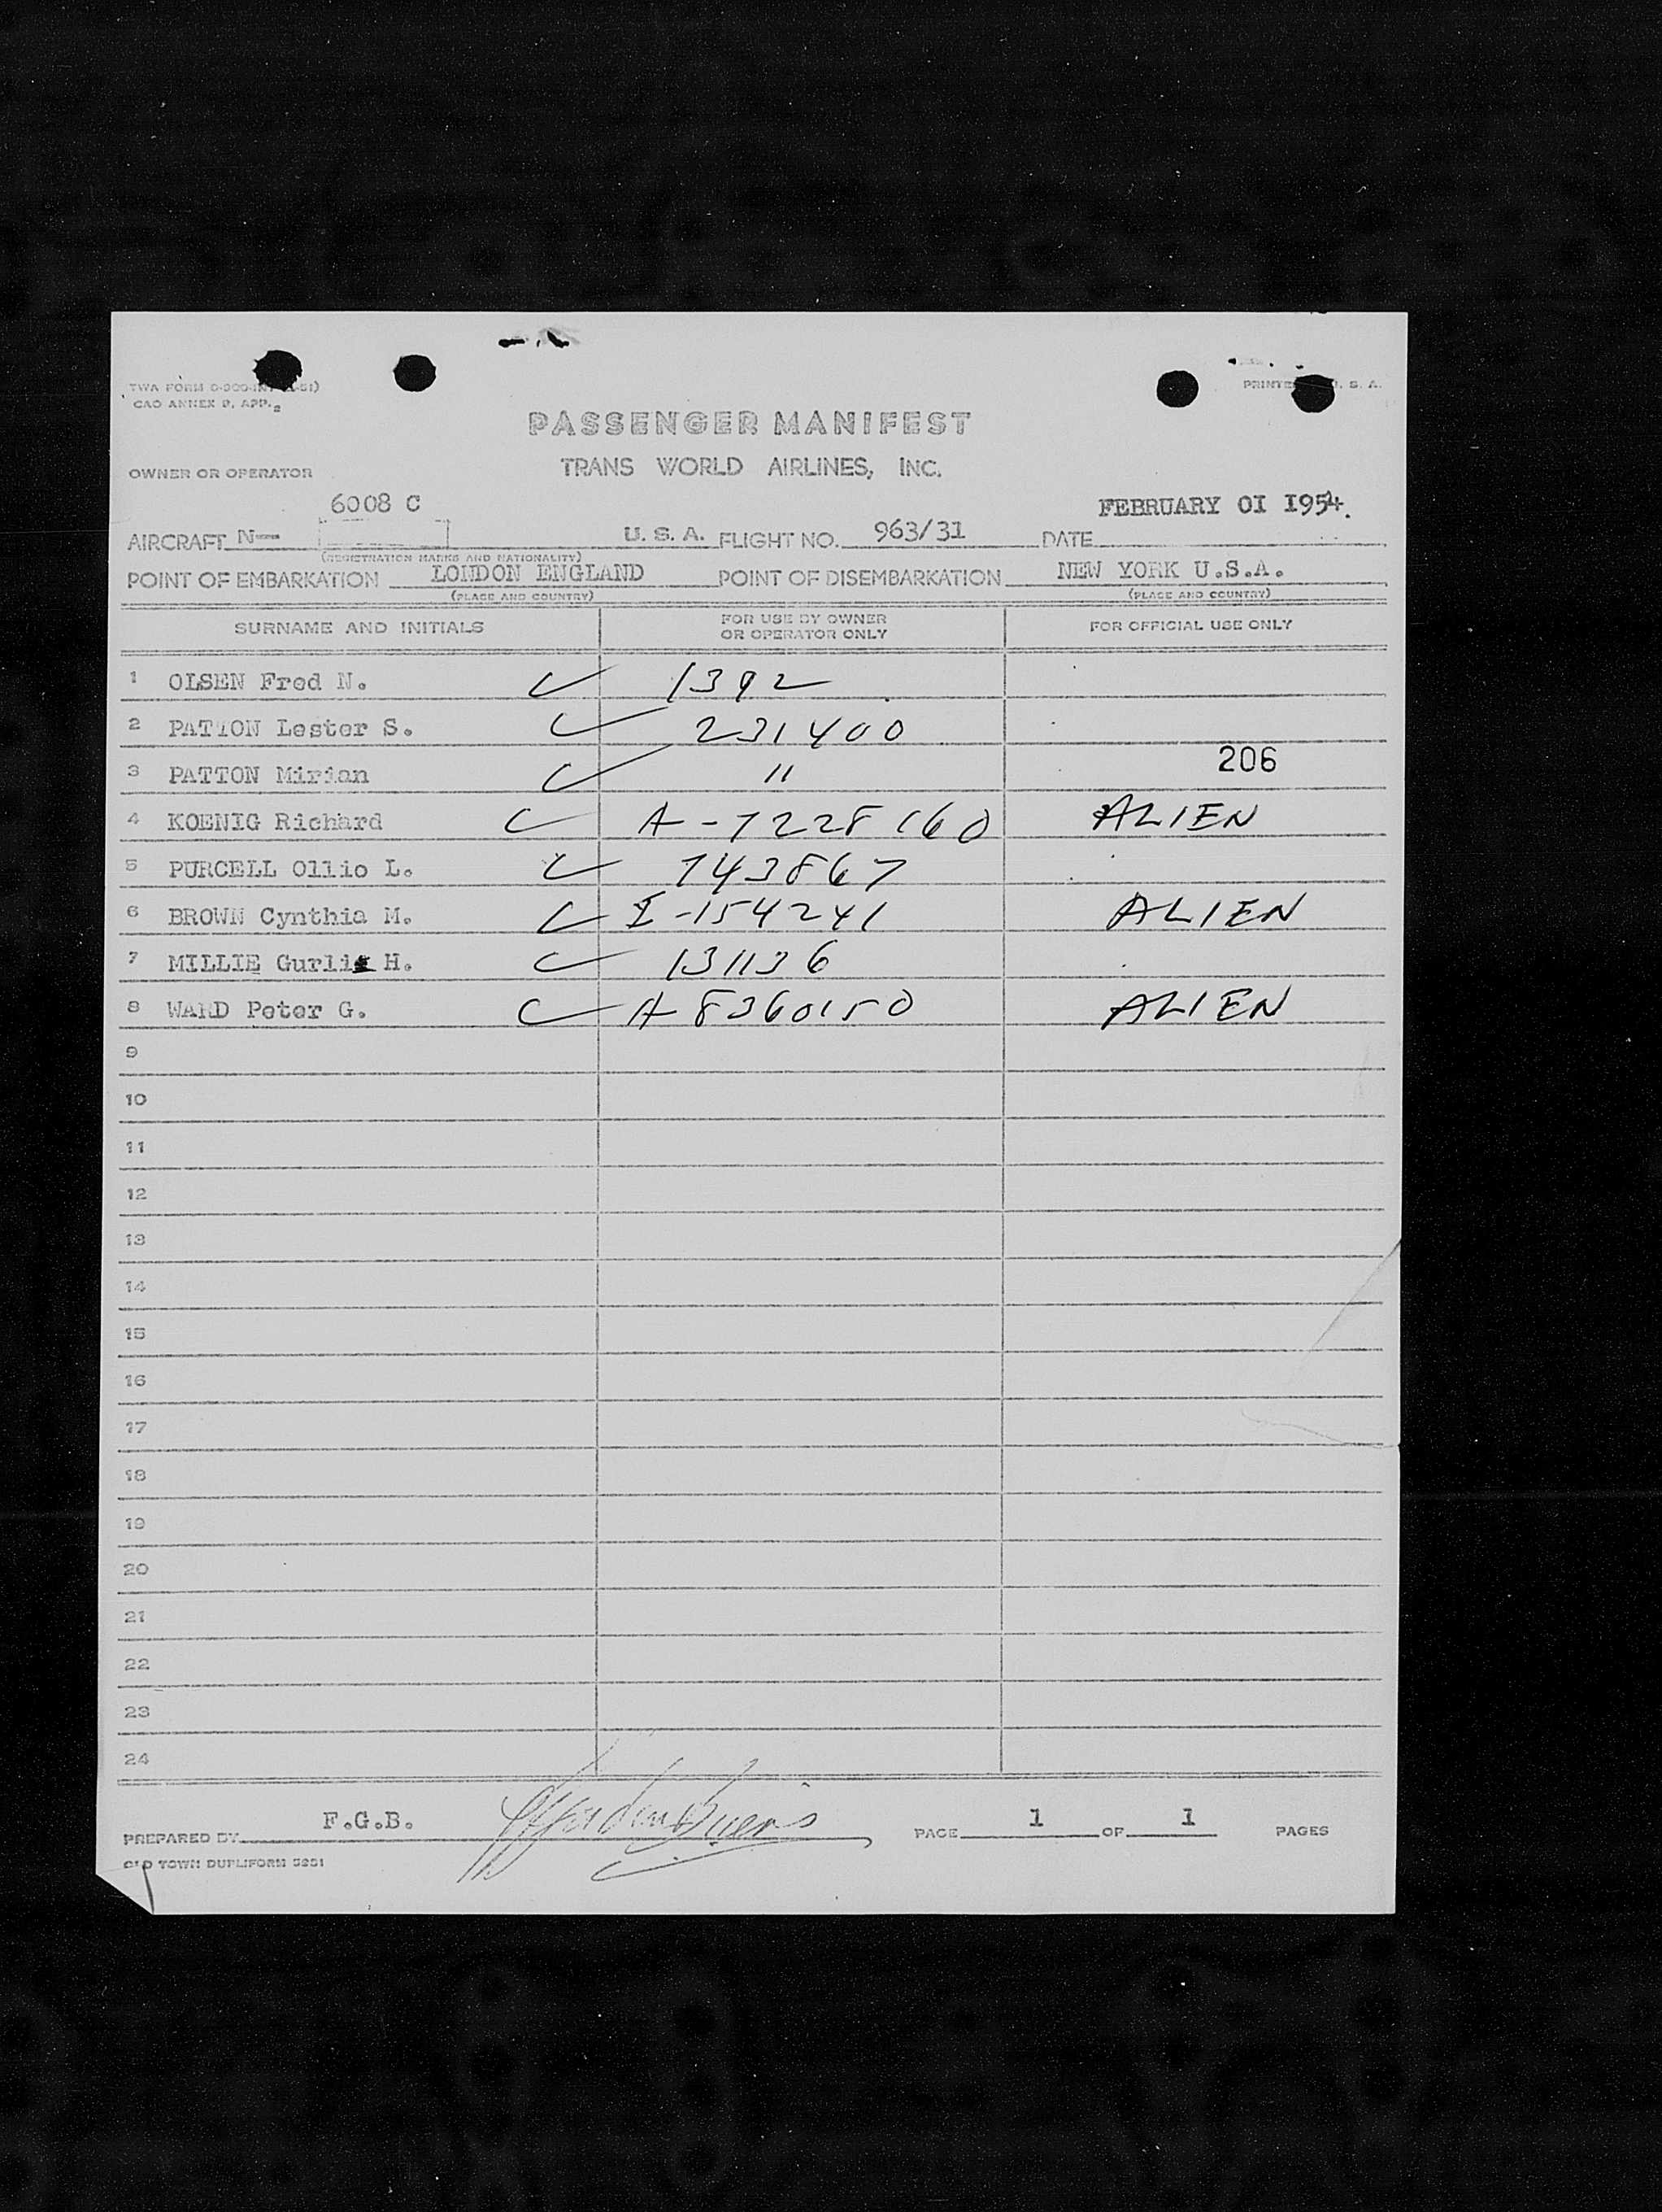 TWA FORM
PRINTED U. S. A.
CAO ANNEX 9, APP. 2
PASSENGER MANIFEST
OWNER OR OPERATOR TRANS WORLD AIRLINES, INC.
6008 C FEBRUARY 01 1954.
AIRCRAFT N— U. S. A. FLIGHT NO. 963/31 DATE
(REGISTRATION MARKS AND NATIONALITY)
POINT OF EMBARKATION LONDON ENGLAND POINT OF DISEMBARKATION NEW YORK U.S.A.
(PLACE AND COUNTRY) (PLACE AND COUNTRY)
SURNAME AND INITIALS FOR USE BY OWNER OR OPERATOR ONLY FOR OFFICIAL USE ONLY
1 OLSEN Fred N. 1392
2 PATTON Lester S. 231400
3 PATTON Mirian " 206
4 KOENIG Richard A-7228160 ALIEN
5 PURCELL Ollie L. 743867
6 BROWN Cynthia M. I-154241 ALIEN
7 MILLIE Gurli H. 131136
8 WARD Peter G. A-8360150 ALIEN
9
10
11
12
13
14
15
16
17
18
19
20
21
22
23
24
PREPARED BY F.G.B. PAGE 1 OF 1 PAGES
OLD TOWN DUPLIFORM 5251